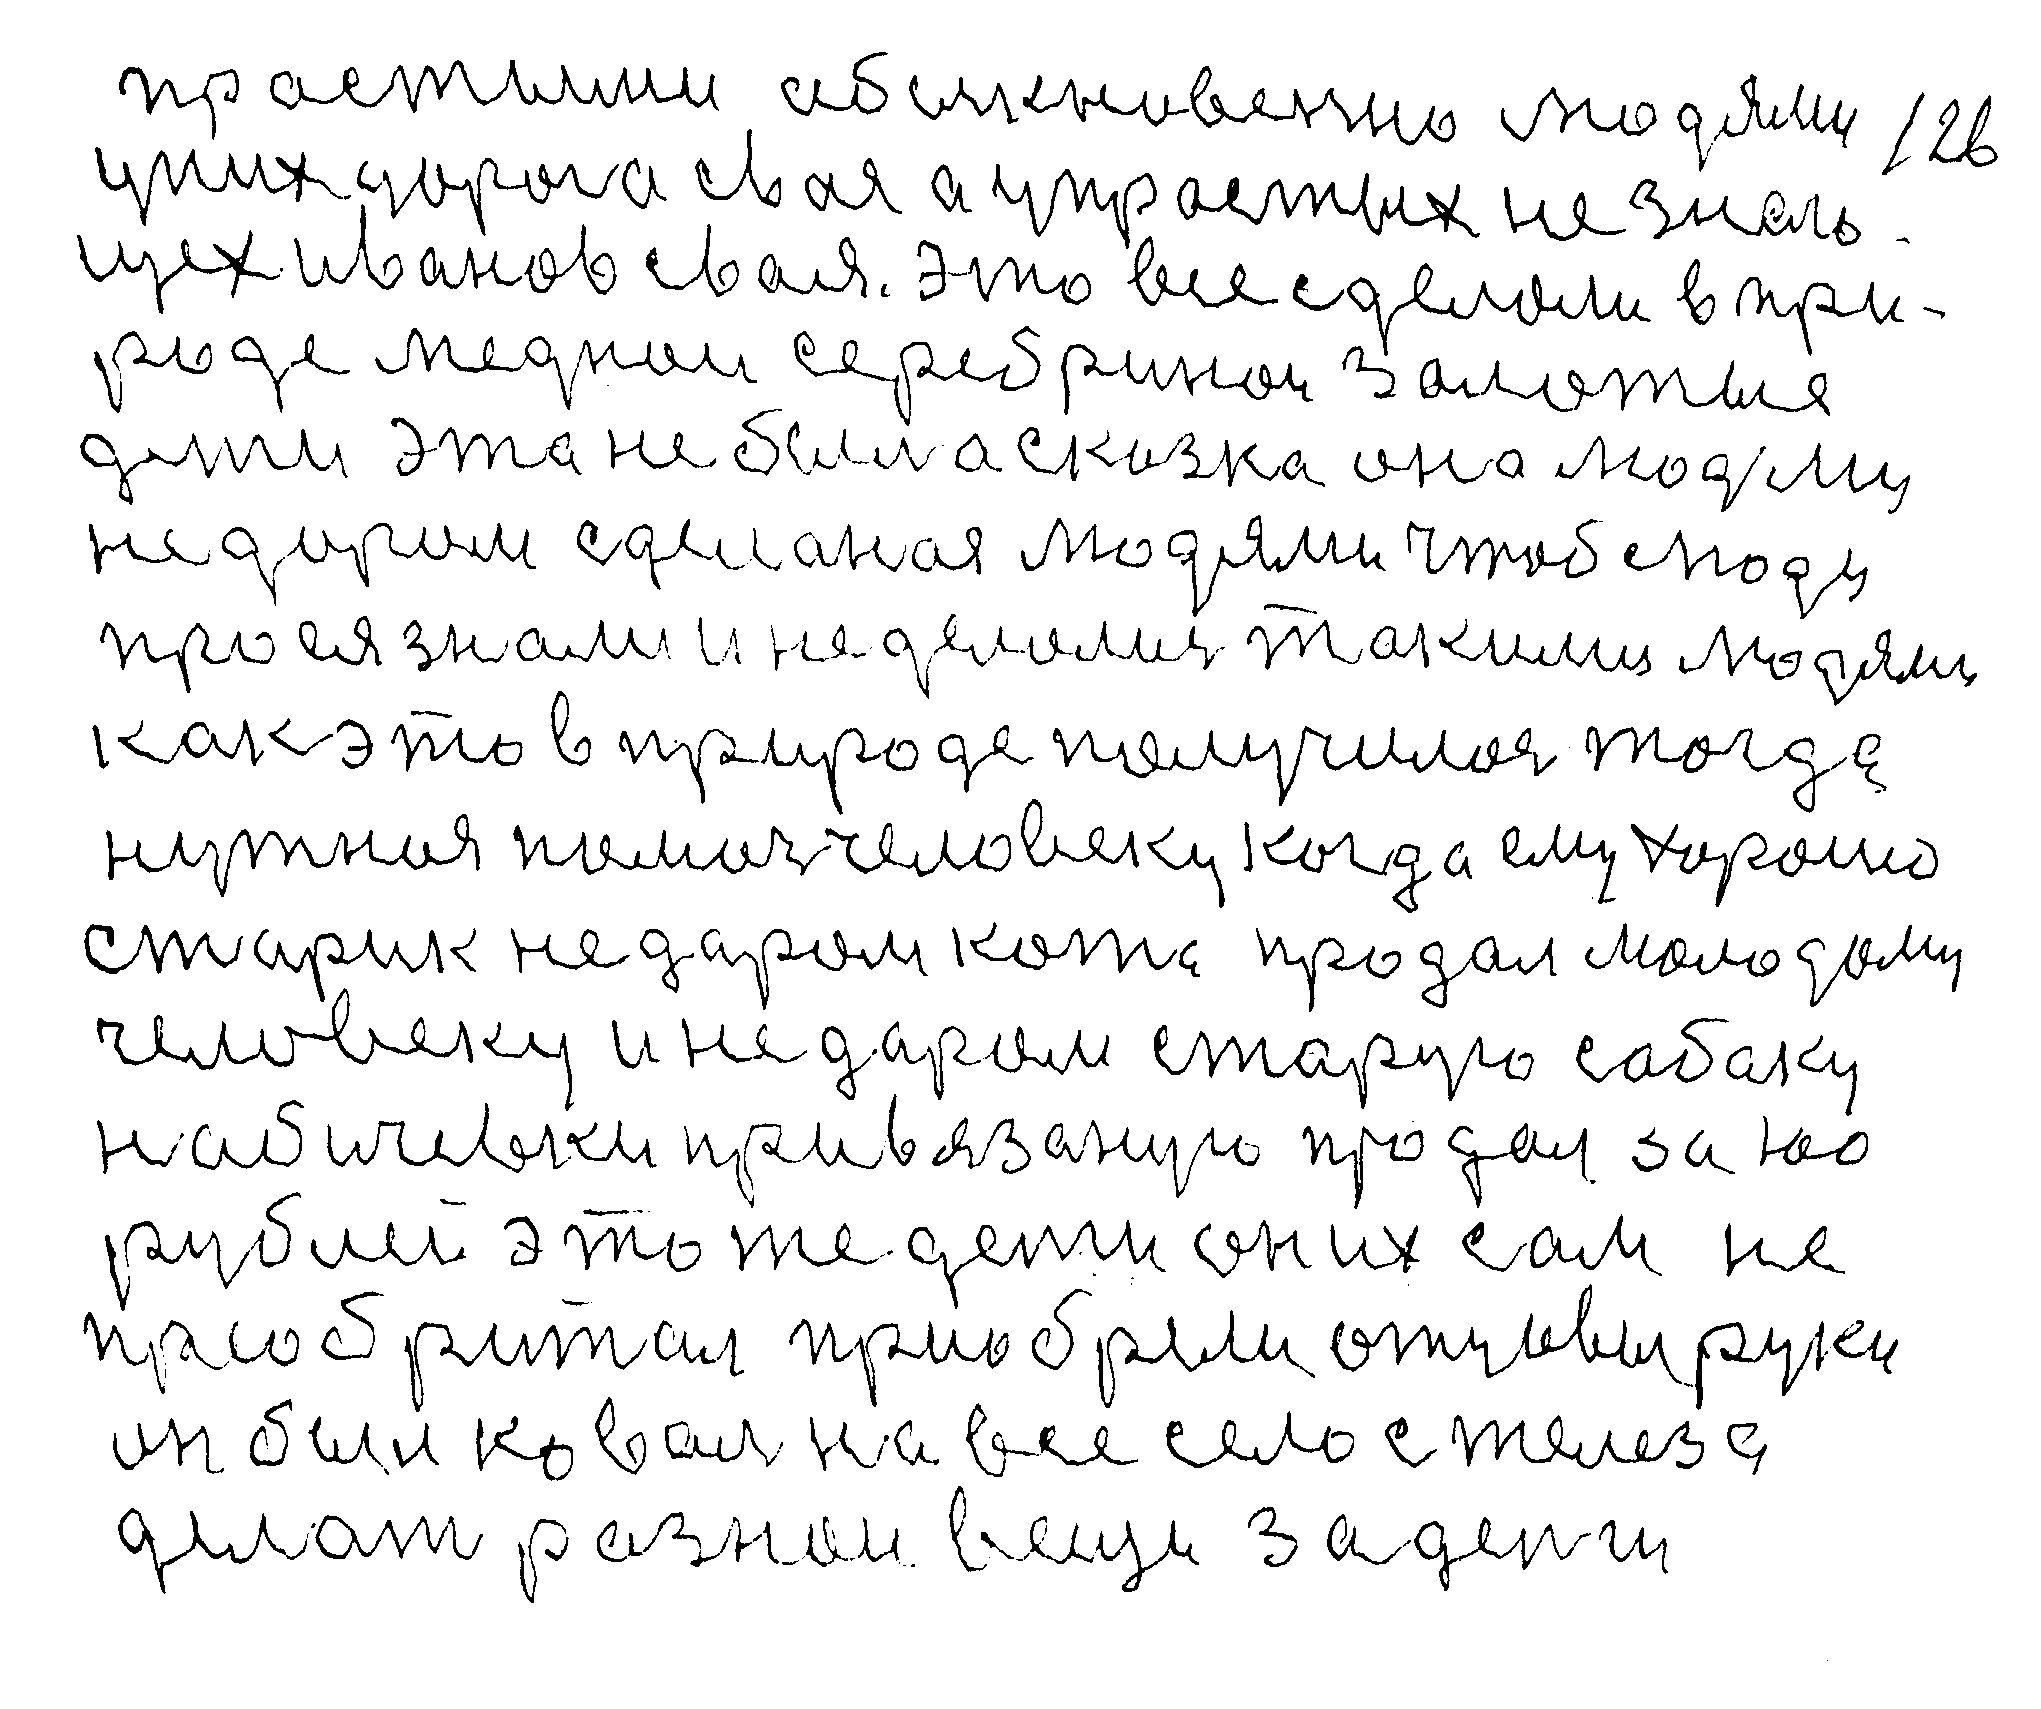 простыми абыкновенно людями 126
уних дорога свая а у простых не знаю-
щех иванов свая. Это все сделали в при-
роде медной серебриной золотые
дети эта не была сказка она людми
не даром сделаная людями чтоб люди
прося знали и не делались такими людями
как это в природе получилоя тогда
нужная помоз человеку когда ему хорошо
старик не даром кота продал молодому
человеку и не даром старую собаку
на бичевки привязаную продал за 100
рублей это же дети он их сам не
приобритал приобрели отцовы руки
он был ковал на все село с железа
делат разной вещи за денги